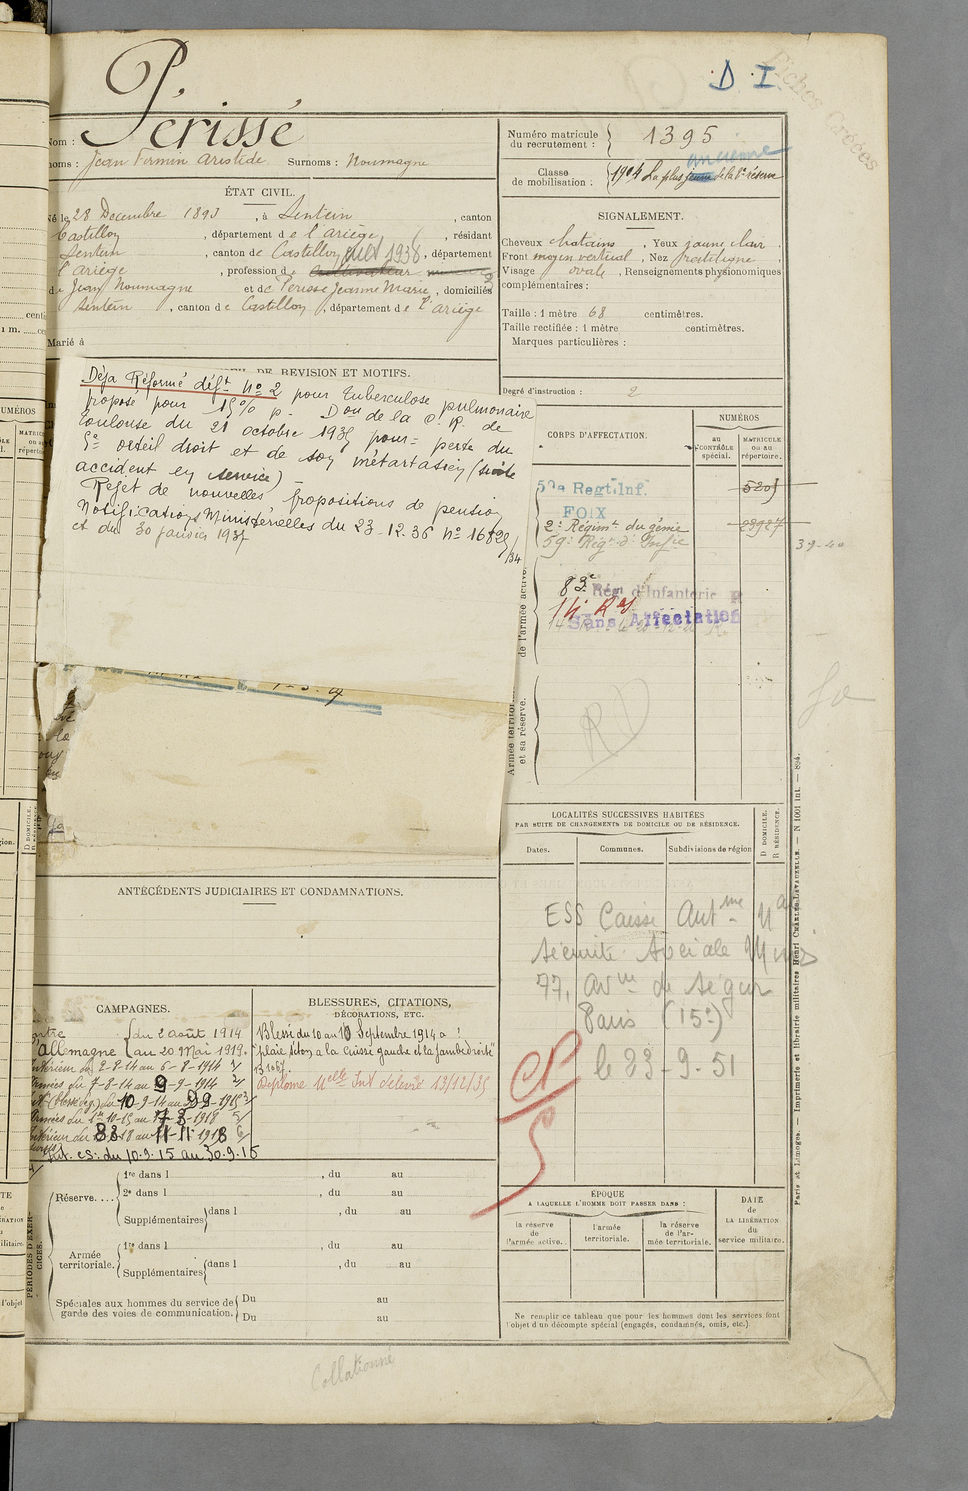 D. I.
Fiches Croisées
Nom : Périssé
noms : Jean Firmin Aristide Surnoms : Noumagne
Numéro matricule du recrutement : 1395
ancienne
Classe de mobilisation : 1904 La plus jeune de la 1re réserve
ÉTAT CIVIL.
Né le 28 Décembre 1893, à Sentein, canton
Castillon, département de l'Ariège, résidant
Sentein, canton de Castillon, département
l'Ariège, profession de cultivateur
de Jean Noumagne et de Périssé Jeanne Marie, domiciliés
Sentein, canton de Castillon, département de l'Ariège
Marié à
SIGNALEMENT.
Cheveux chatains, Yeux jaune clair,
Front moyen vertical, Nez rectiligne,
Visage ovale, Renseignements physionomiques
complémentaires :
Taille : 1 mètre 68 centimètres.
Taille rectifiée : 1 mètre centimètres.
Marques particulières :
Degré d'instruction : 2
DE REVISION ET MOTIFS.
Déja Réformé déft No 2 pour tuberculose pulmonaire
proposé pour 15% p. Don de la C.R. de
Toulouse du 21 octobre 1935 pour = perte du
5e orteil droit et de son métartasien (suite
accident en service) -
Rejet de nouvelles propositions de pension
Notifications Ministérielles du 23-12-36 No 16829/34
et du 30 janvier 1937
CORPS D'AFFECTATION.
NUMÉROS
au CONTRÔLE spécial.
MATRICULE ou au répertoire.
59e Regt. Inf.
FOIX
5205
2e Régimt du génie
23927
59e Régt d'Infie
39-40
83e Régt d'Infanterie R
14e R
Sans Affectation
de l'armée active.
Armée territor.
et sa réserve.
RD
LOCALITÉS SUCCESSIVES HABITÉES
PAR SUITE DE CHANGEMENTS DE DOMICILE OU DE RÉSIDENCE.
D DOMICILE.
R RÉSIDENCE.
Dates.
Communes.
Subdivisions de région
ESS Caisse Autme Nale
Sécurité Sociale Mines
77, avue de Ségur
Paris (15e)
le 23-9-51
CP
5
ANTÉCÉDENTS JUDICIAIRES ET CONDAMNATIONS.
CAMPAGNES.
Contre l'Allemagne { du 2 août 1914
au 20 Mai 1919.
Intérieur du 2-8-14 au 6-8-1914
Armées du 7-8-14 au 9-9-1914
Int. cs: du 10.9.15 au 30.9.15
BLESSURES, CITATIONS,
DÉCORATIONS, ETC.
Blessé du 10 au 10 Septembre 1914 a
"plaie séton a la cuisse gauche et la jambe droite"
Diplome Melle Int délivré 13/12/35
PÉRIODES D'EXERCICES.
Réserve....
1re dans l , du au
2e dans l , du au
Supplémentaires dans l , du au
Armée territoriale.
1re dans l , du au
Supplémentaires dans l , du au
Spéciales aux hommes du service de garde des voies de communication.
Du au
Du au
ÉPOQUE
A LAQUELLE L'HOMME DOIT PASSER DANS :
la réserve de l'armée active.
l'armée territoriale.
la réserve de l'armée territoriale.
DATE de LA LIBÉRATION du service militaire.
Ne remplir ce tableau que pour les hommes dont les services font
l'objet d'un décompte spécial (engagés, condamnés, omis, etc.).
Paris et Limoges. — Imprimerie et librairie militaires Henri CHARLES-LAVAUZELLE. — N 1001 int. — 894.
Collationné